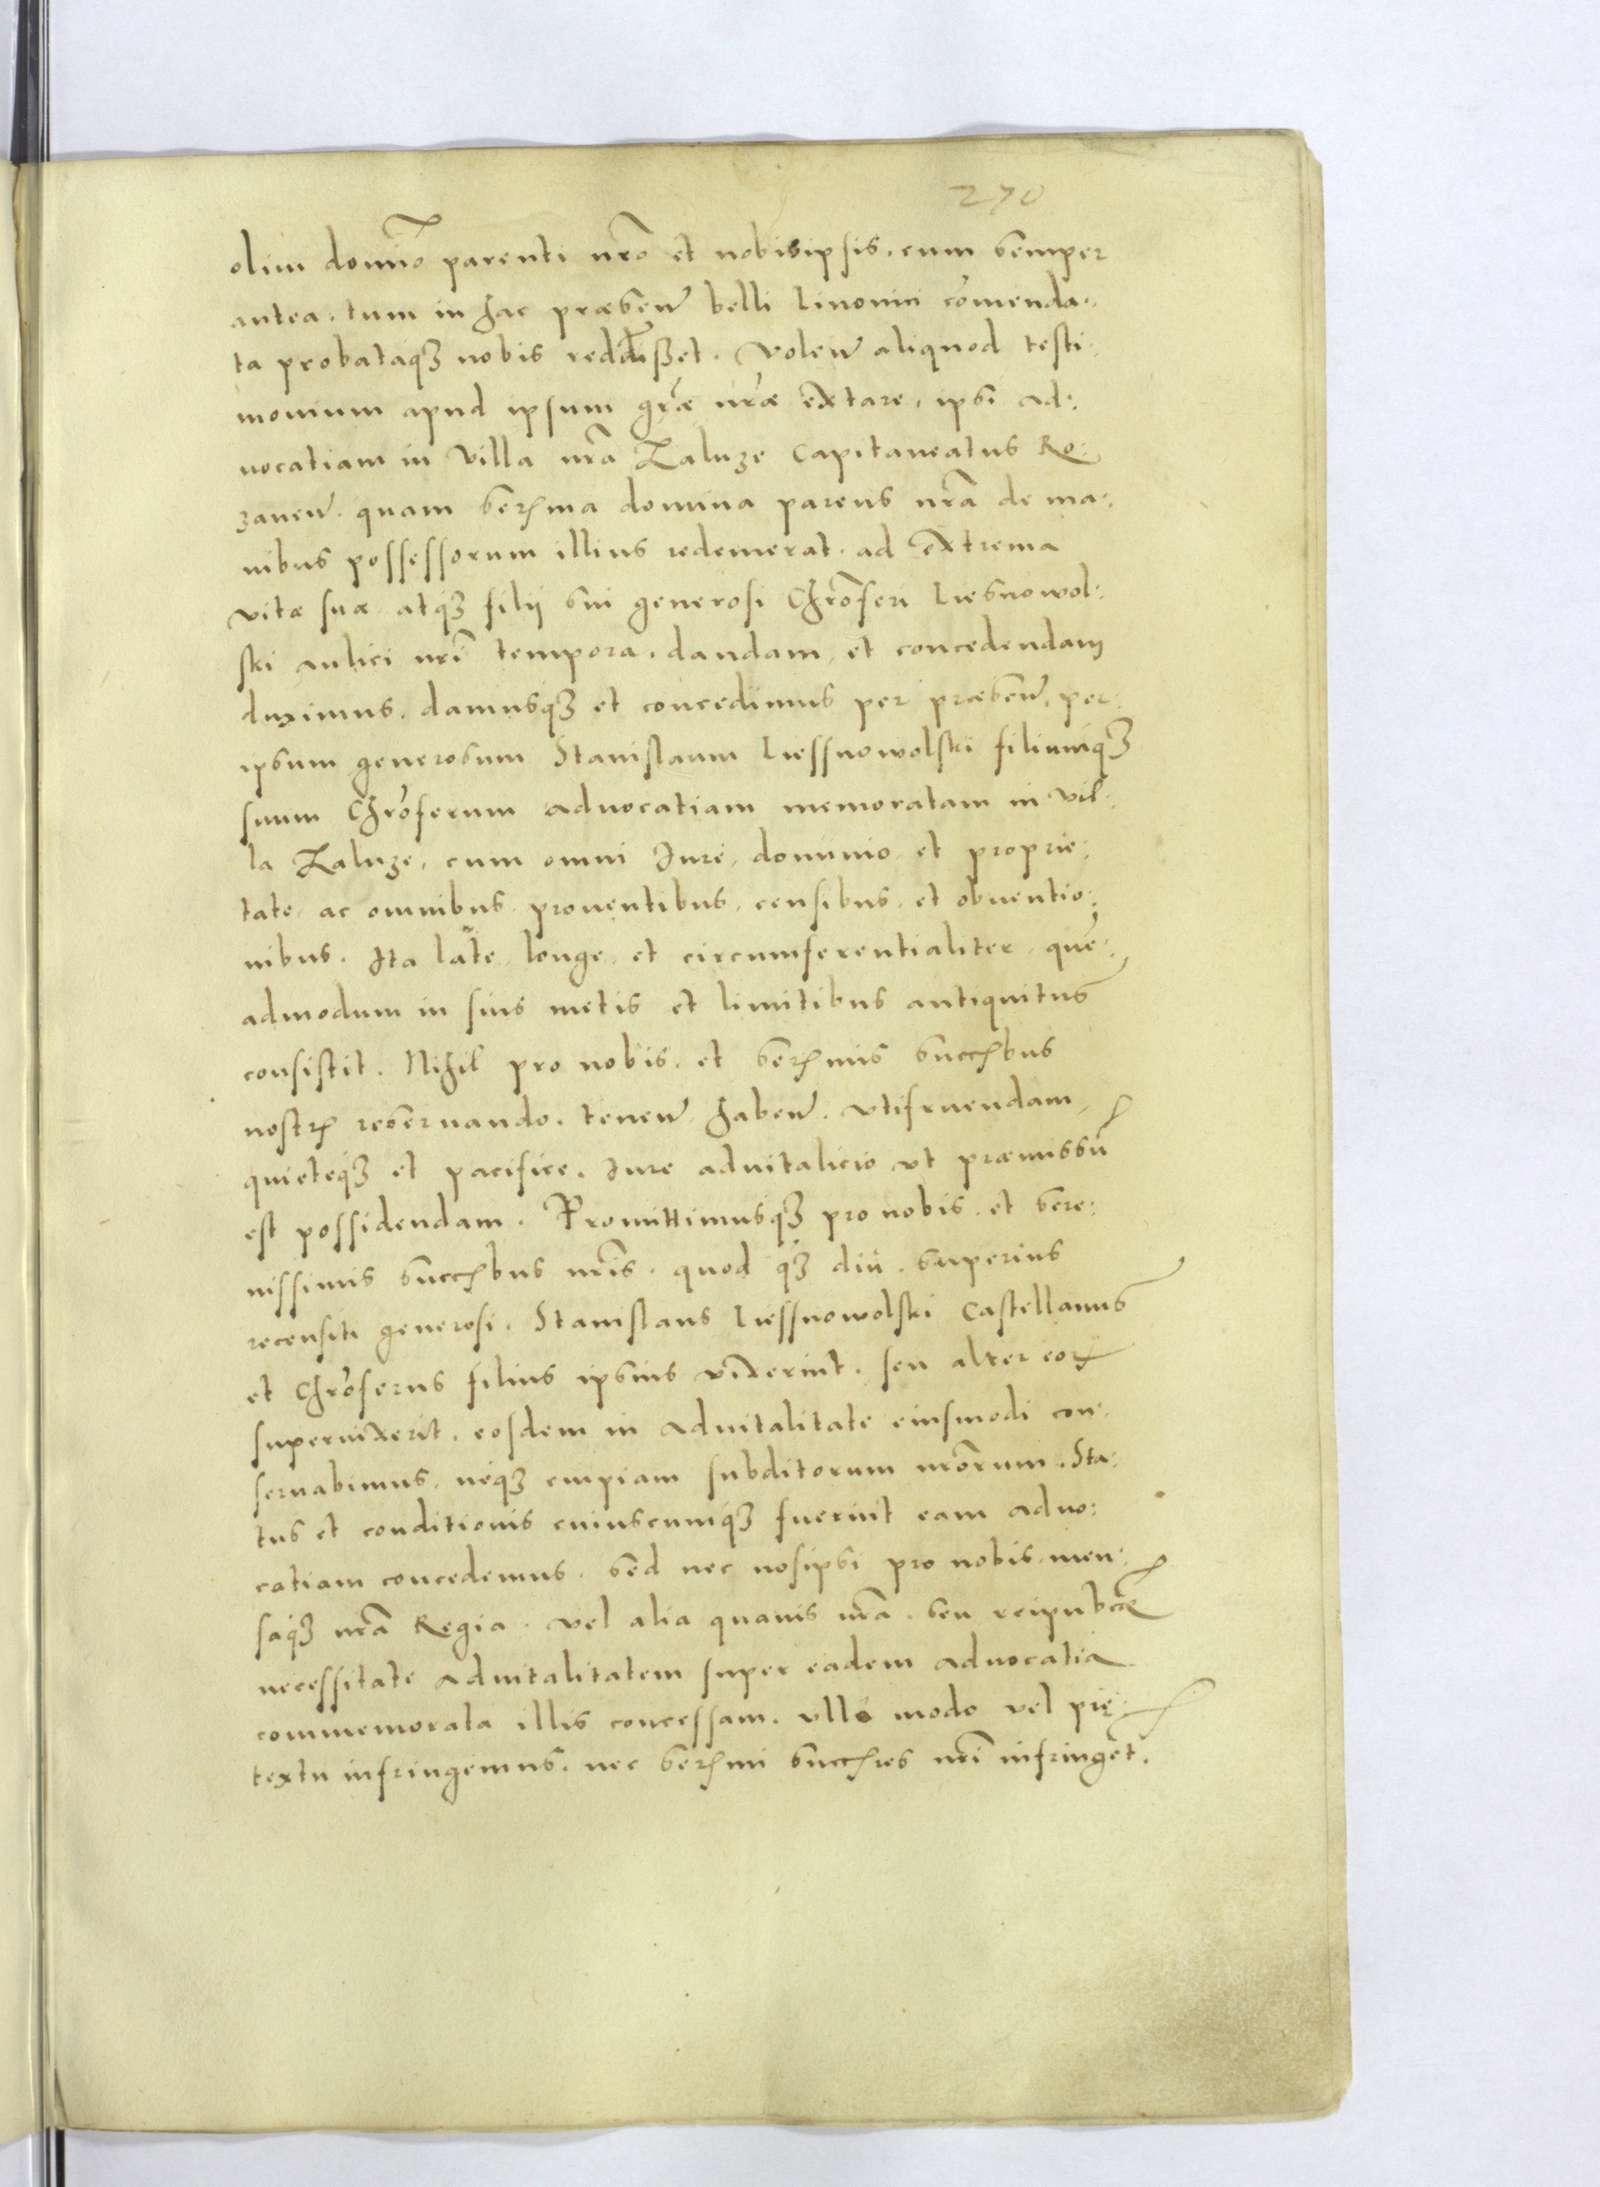 270
olim domīo parenti nrō et nobisipsis, cum semper
antea, tum in hac præsen belli Livonici comenda:
ta probataq₃ nobis reddidisset. Volen aliquod testi:
monium apud ipsum grae nrae extare, ipsi Ad:
vocatiam in Villa nrā Zaluze Capitaneatus Ro:
zanen quam serma domina parens nrā de ma:
nibus possessorum illius redemerat, ad extrema
vitæ suæ atq₃ filij sui generosi Chrōferi Liesnowol:
ski aulici nrī tempora, dandam, et concedendam
duximus, damusq₃ et concedimus per præsen, per
ipsum generosum Stanislaum Liessnowolski filiumq₃
suum Chrōferum advocatiam memoratam in Vil:
la Zaluze, cum omni Jure, dominio et proprie:
tate, ac omnibus proventibus, censibus, et obventio:
nibus. Ita late, longe, et circumferentialiter, quē:
admodum in suis metis et limitibus antiquitus
consistit. Nihil pro nobis, et sermis succbus
nostr reservando, tenen haben, utifruendam,
quieteq₃ et pacifice, Jure advitalicio ut præmissū
est possidendam. Promittimusq₃ pro nobis, et sere:
nissimis succbus nrīs, quod q₃ diu superius
recensiti generosi, Stanislaus Liessnowolski Castellanus
et Chrōferus filius ipsius vixerint, seu alter eor
supervixerit, eosdem in advitalitate eiusmodi con:
servabimus, neq₃ cuipiam subditorum nrōrum, Sta:
tus et conditionis cuiuscumq₃ fuerint eam advo:
catiam concedemus. Sed nec nosipsi pro nobis, men:
saq₃ nrā Regia, vel alia quavis nrā, seu reipubcae
necessitate advitalitatem super eadem advocatia
commemorata illis concessam, ullo modo vel prę:
textu infringemus, nec sermi succres nrī infringēt.